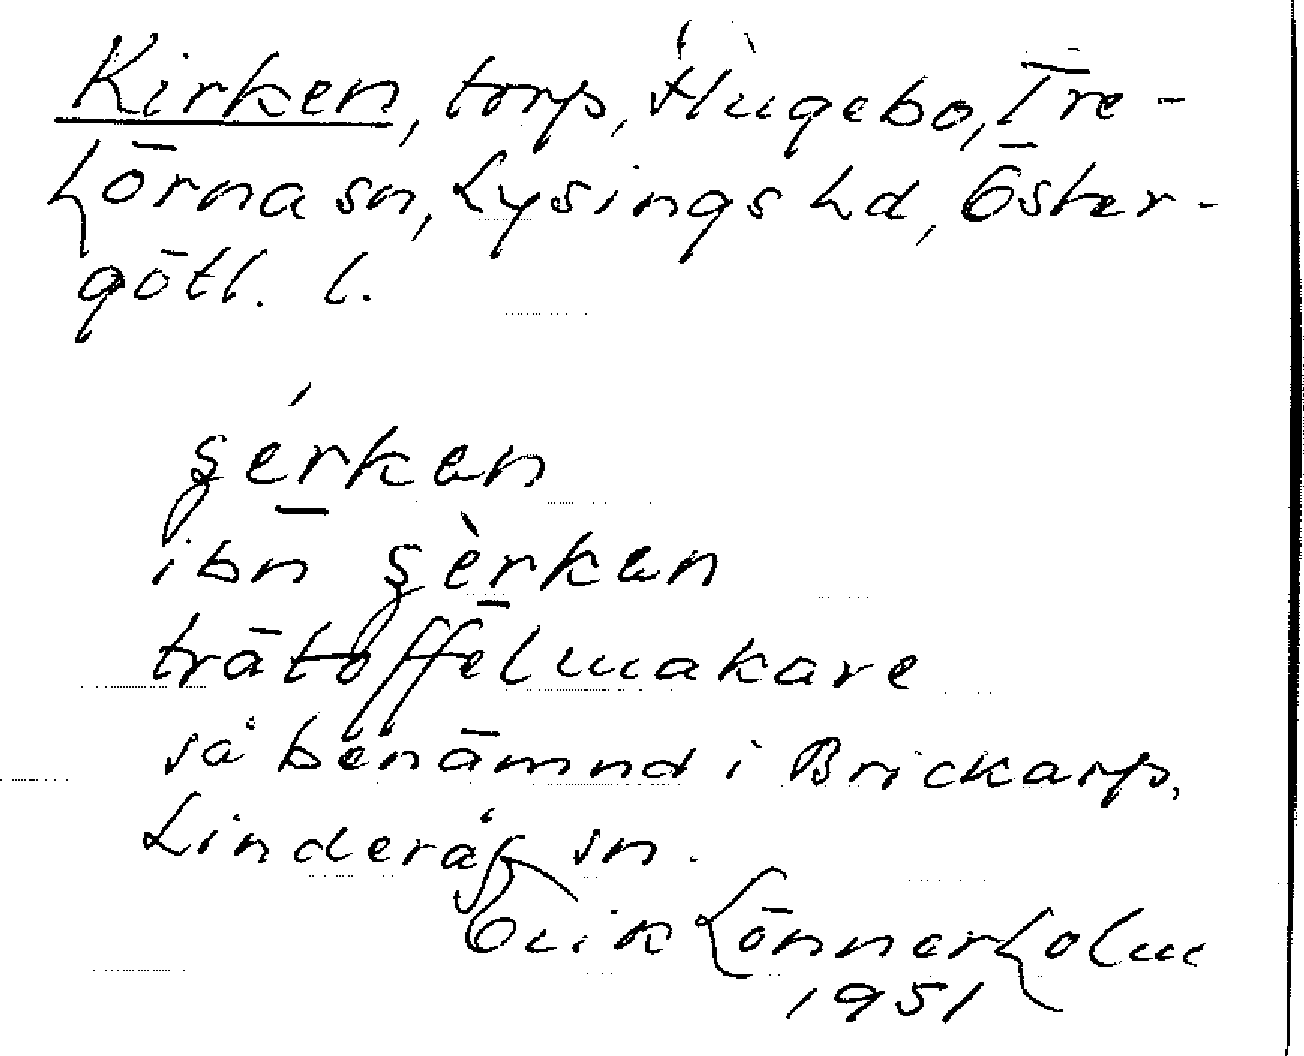 Kirken, torp, Hugebo, Tre-
hörna sn, Lysings hd, Öster-
götl. l.
şérken
ibn şèrken
trätoffelmakare
så benämnd i Brickarp,
Linderås sn.
Erik Lönnerholm
1951